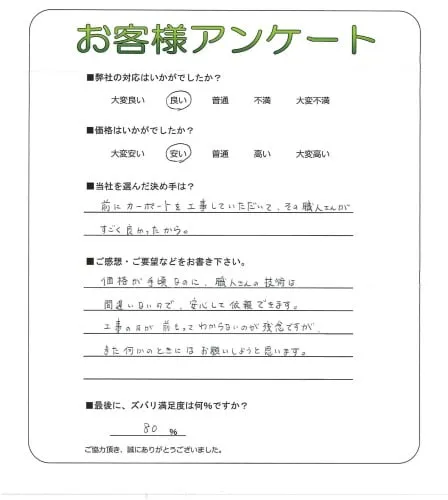 お客様アンケート
■弊社の対応はいかがでしたか?
大変良い 良い 普通 不満 大変不満
■価格はいかがでしたか?
大変安い 安い 普通 高い 大変高い
■当社を選んだ決め手は?
前にカーポートを工事していただいて、その職人さんが
すごく良かったから。
■ご感想・ご要望などをお書き下さい。
価格が手頃なのに、職人さんの技術は
間違いないので、安心して依頼できます。
工事の日が前もってわからないのが残念ですが、
また何かのときにはお願いしようと思います。
■最後に、ズバリ満足度は何%ですか?
80 %
ご協力頂き、誠にありがとうございました。